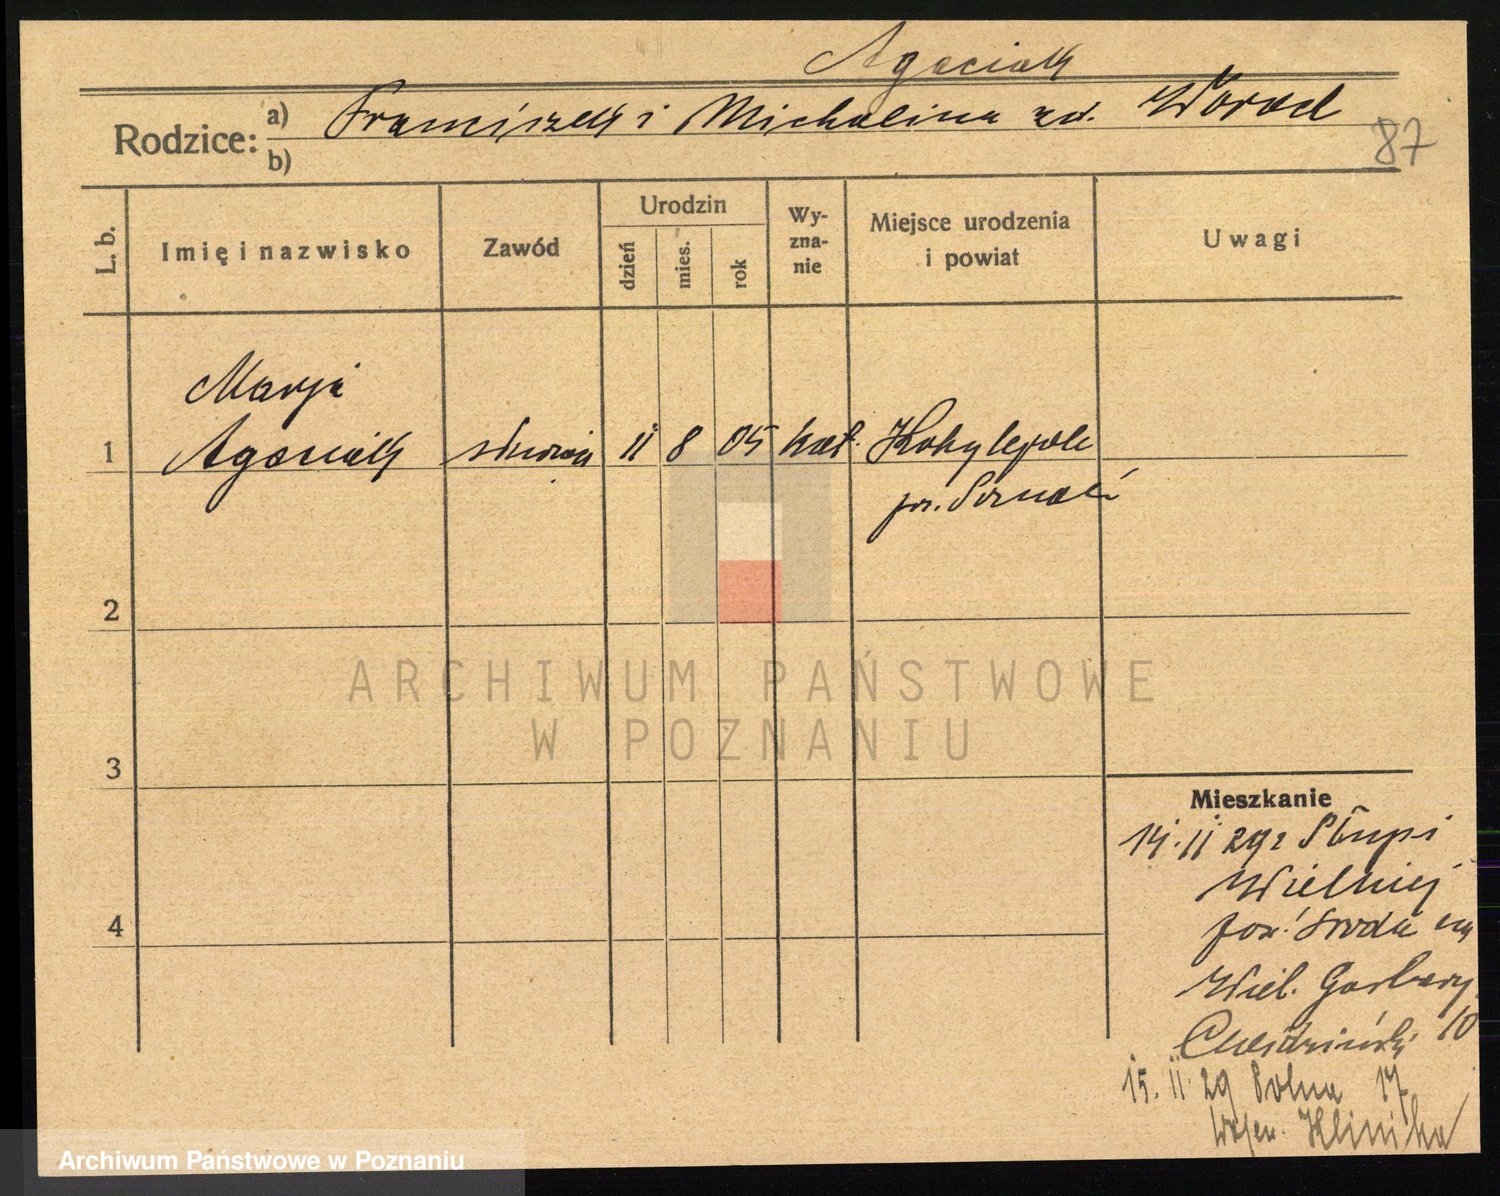 Agaciak
Rodzice: a) Franciszek i Michalina zd. Worach
b)
87
L. b.
Imię i nazwisko
Zawód
Urodzin
dzień
mies.
rok
Wy-
zna-
nie
Miejsce urodzenia
i powiat
Uwagi
Marja
1 Agaciak służąca 11 8 05 kat. Kobylepole
pow. Poznań
2
3
4
ARCHIWUM PAŃSTWOWE
W POZNANIU
Mieszkanie
14. II 29 z Słupi
Wielkiej
pow. Środa na
Wiel. Garbary
10
15. II 29 Polna 17
Klinika
Archiwum Państwowe w Poznaniu